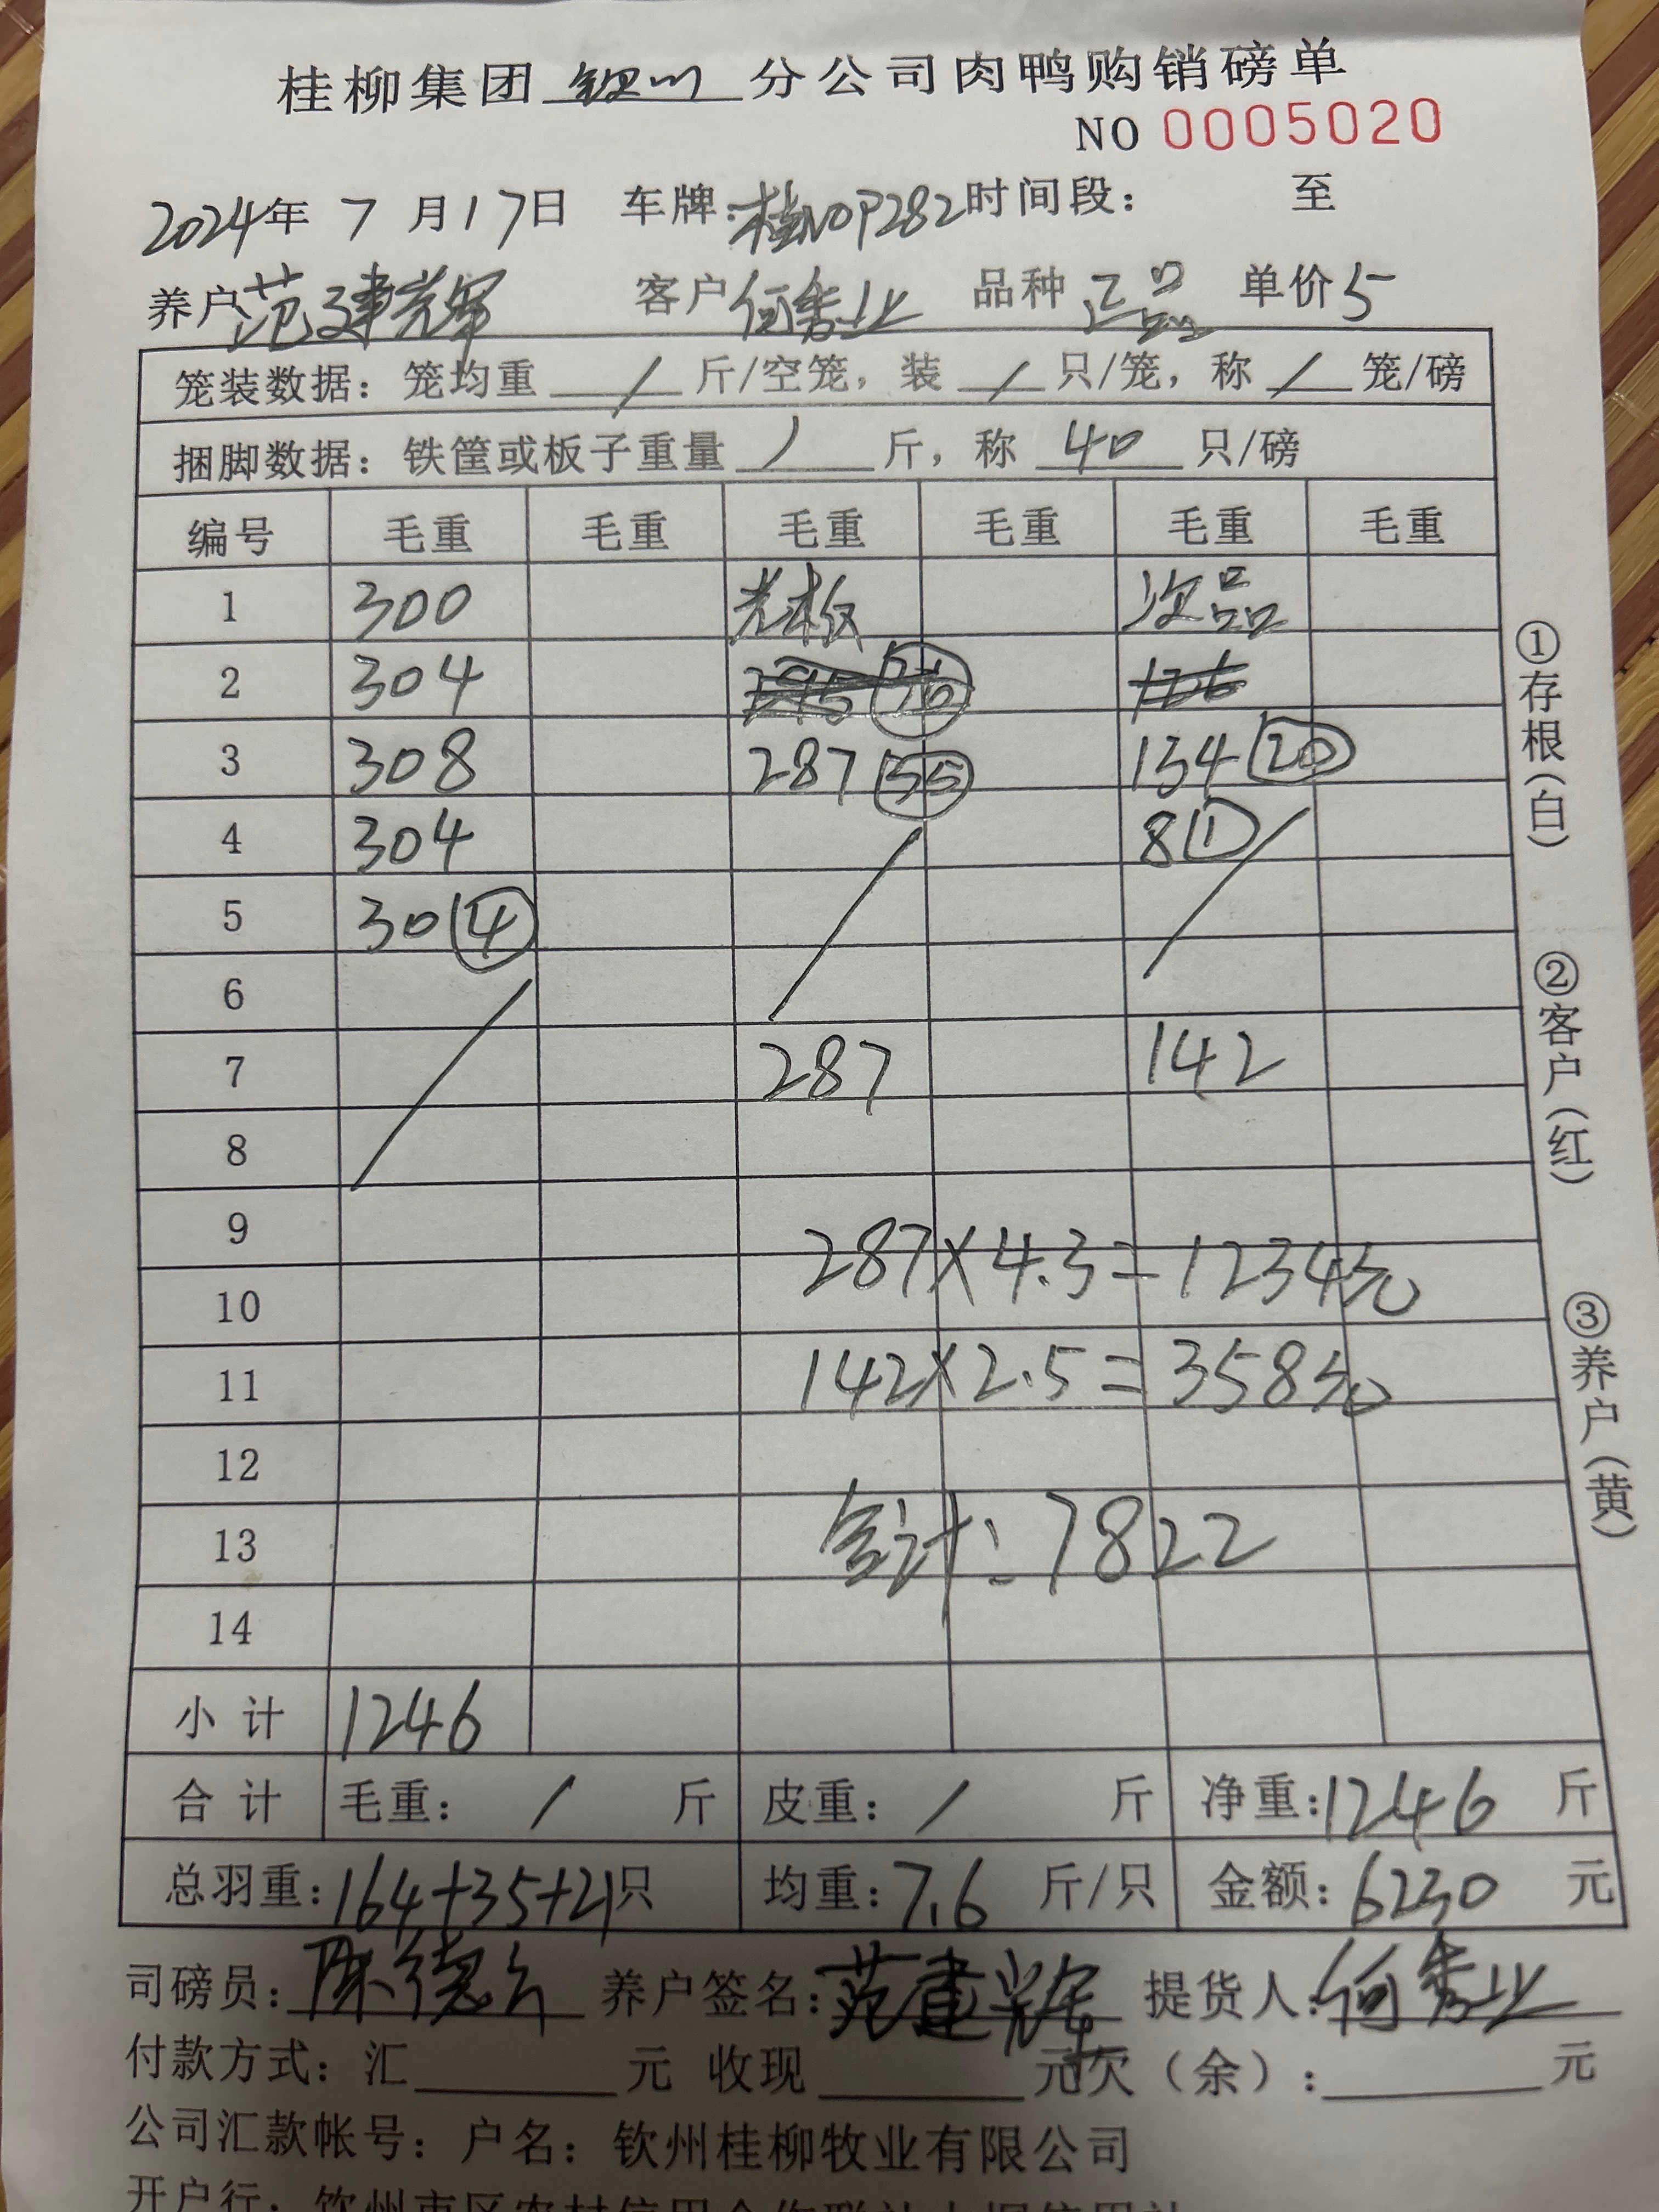 桂柳集团钦州分公司肉鸭购销磅单
NO 0005020
2024年 7 月17日 车牌:桂NOP282时间段: 至
养户范建辉 客户何秀业 品种 正品 单价5
笼装数据: 笼均重 / 斤/空笼, 装 / 只/笼, 称 / 笼/磅
捆脚数据: 铁筐或板子重量 / 斤, 称 40 只/磅
编号 毛重 毛重 毛重 毛重 毛重 毛重
1 300 光板 次品
2 304
3 308 287 35 134 20
4 304 8 1
5 30 4
6
7 287 142
8
9
287×4.3=1234元
10
11 142×2.5=358元
12
13 合计:7822
14
小计 1246
合计 毛重: / 斤 皮重: / 斤 净重:1246 斤
总羽重:164+35+21只 均重:7.6 斤/只 金额:6230 元
司磅员: 陈德 养户签名:范建辉 提货人:何秀业
付款方式: 汇 元 收现 元欠(余): 元
公司汇款帐号: 户名: 钦州桂柳牧业有限公司
开户行:
①存根(白)
②客户(红)
③养户(黄)